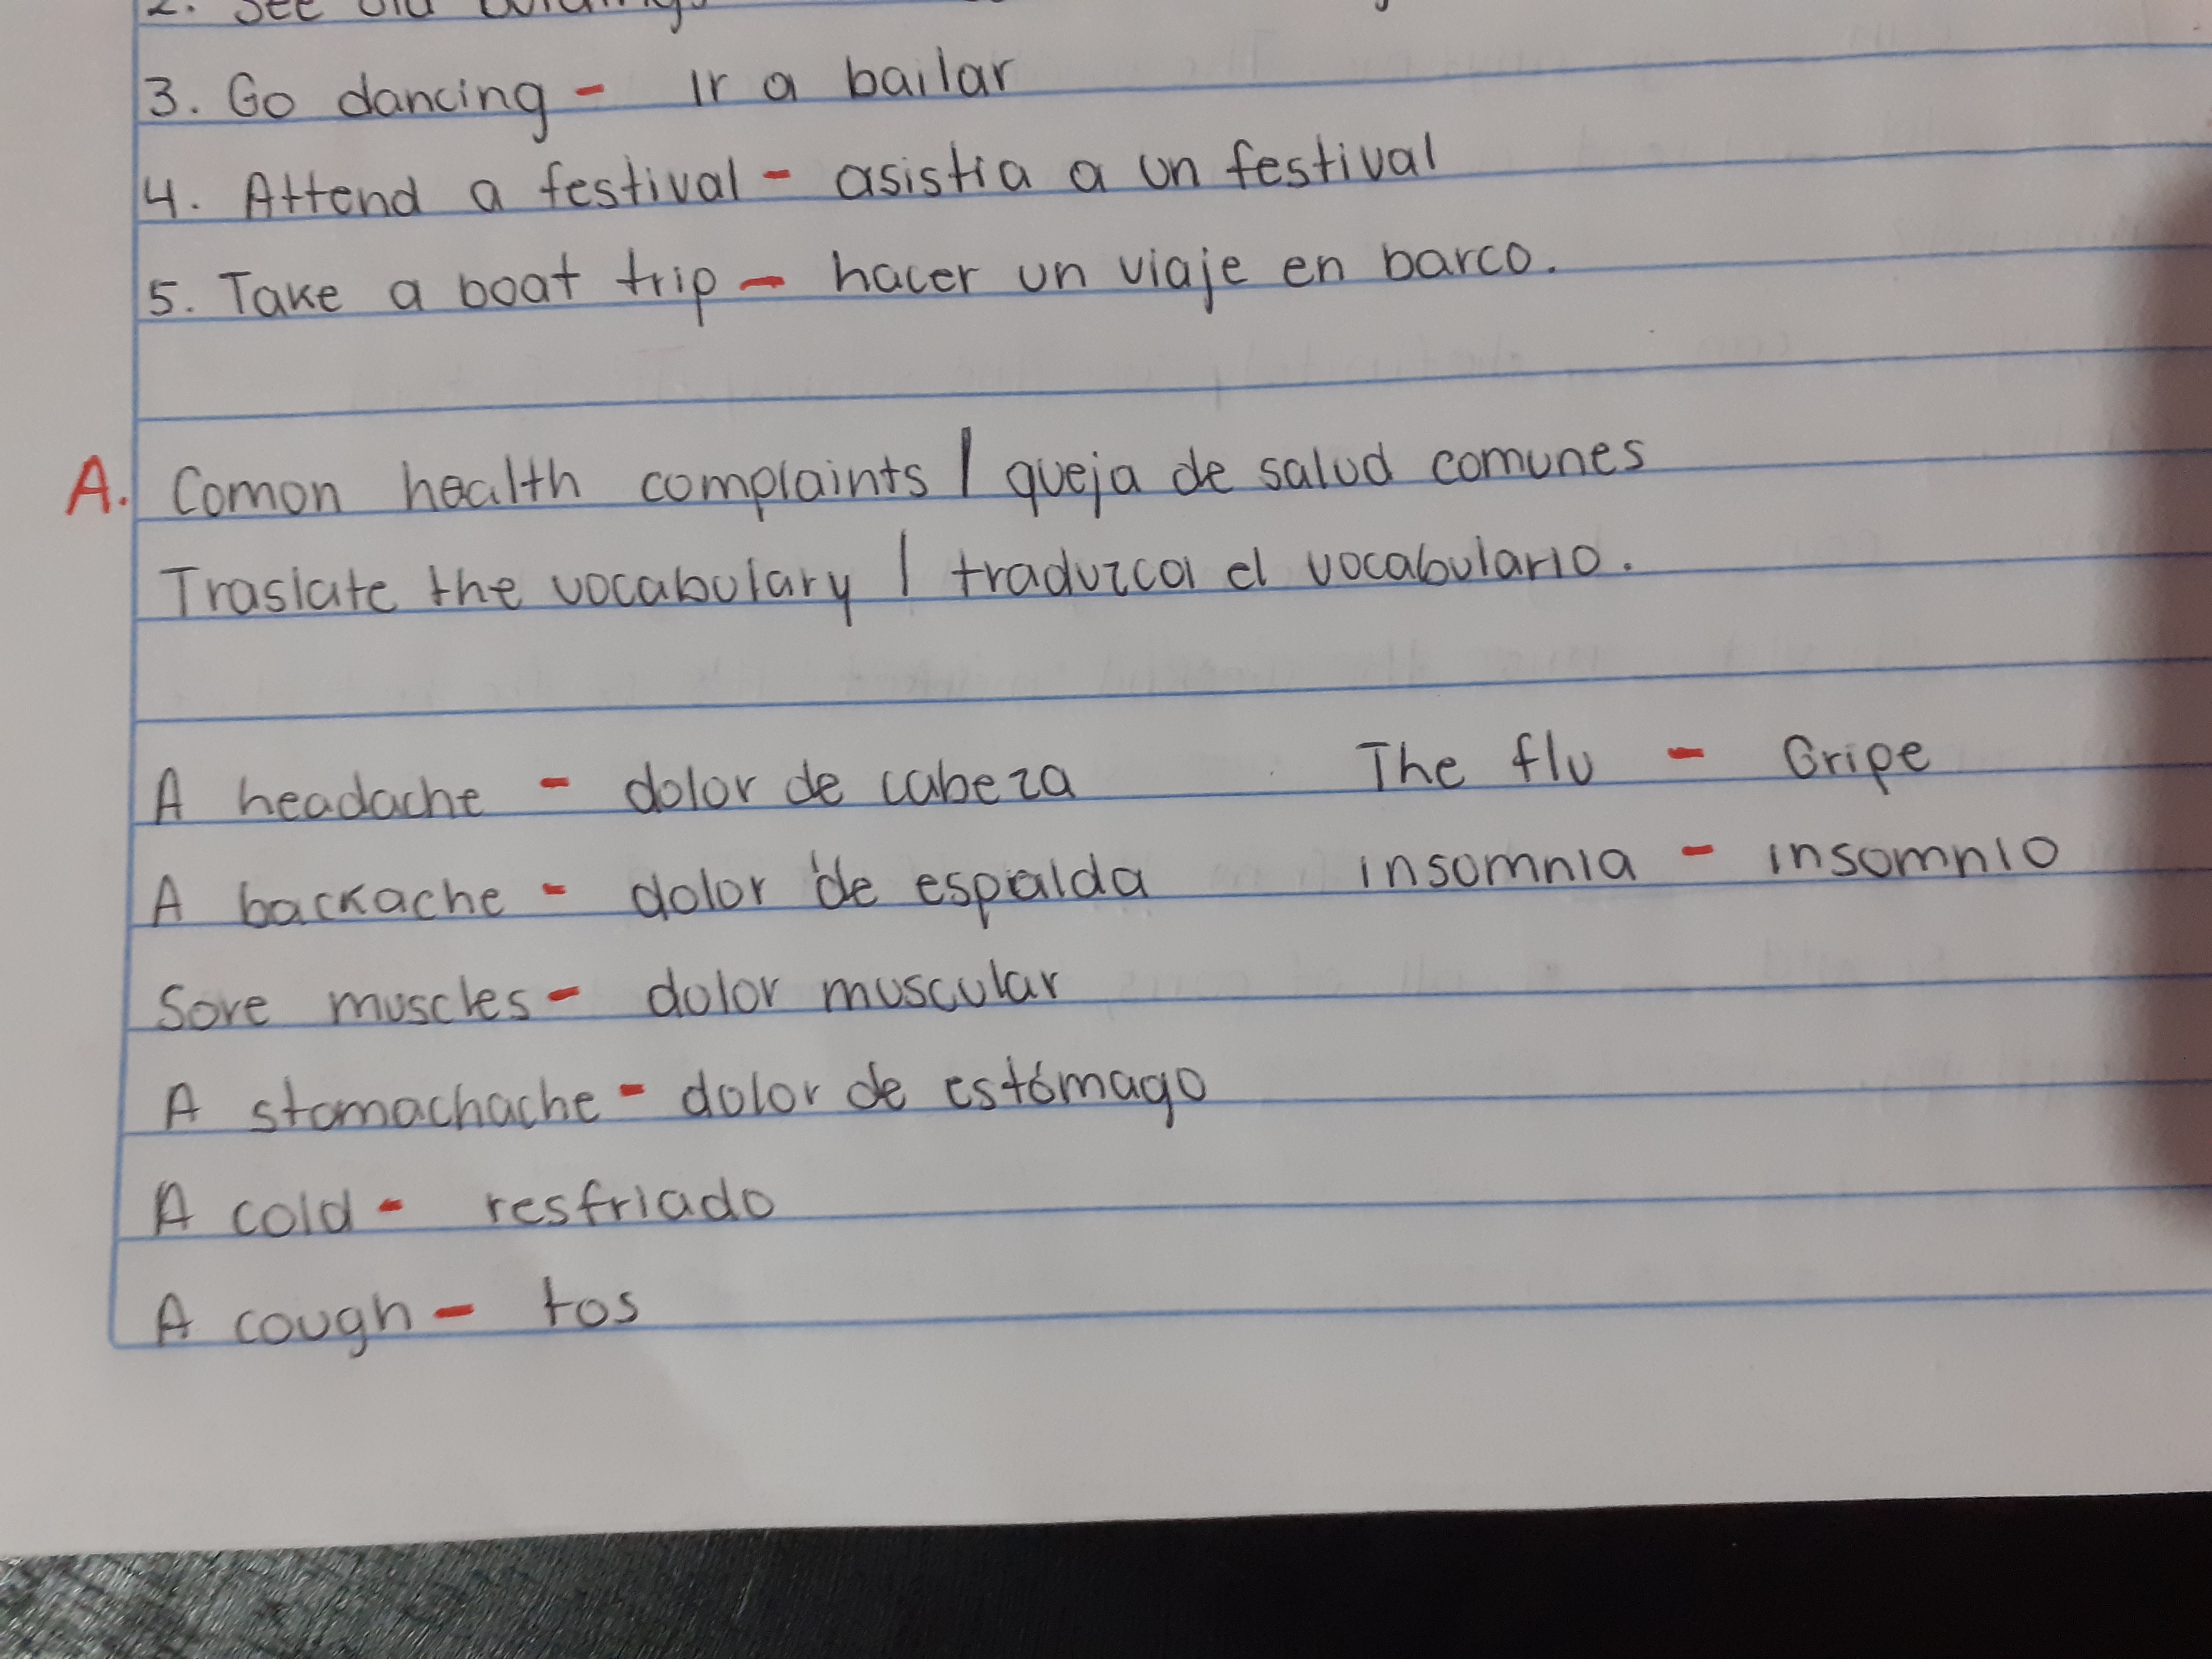 2. See old buildings
3. Go dancing - Ir a bailar
4. Attend a festival - asistia a un festival
5. Take a boat trip - hacer un viaje en barco.
A. Comon health complaints / queja de salud comunes
Traslate the vocabulary / traduzca el vocabulario.
A headache - dolor de cabeza The flu - Gripe
A backache - dolor de espalda insomnia - insomnio
Sore muscles - dolor muscular
A stomachache - dolor de estómago
A cold - resfriado
A cough - tos